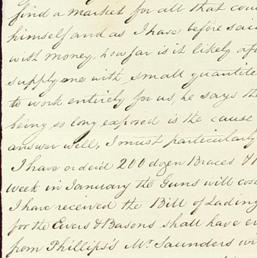 find a market for all that cou
himself and as I have before said
with money, how far is it likely aft
supply me with small quantite
to work entirely for us, he says th
being so long exposed is the cause
answer well, I must particularly
I have order'd 200 dozn Braces &
week in January the Guns will cos
I have received the Bill of Lading
for the Ewers & Basons shall have
from Phillips's Mr. Saunders wi